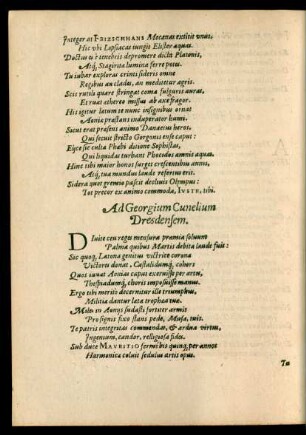 Integer at FRIZSCHHANS Mecœnas extitit unus,
Hic ubi Lipsiacas iungit Elister aquas.
Doctus ut è tenebris depromere dicta Platonis,
Atq́; Stagiritæ lumina ferre potus.
Tu iubar explorat crinis sideris omne
Regibus an clades, an medietur agris.
Scis rutilâ quare stringat coma fulguris auras,
Et ruat æthereo missus ab axe fragor.
Hic igitur latum te nunc insignibus ornat
Aonia præstans induperator humi.
Satus erat præsens animo Danaeius heros,
Qui secuit stricto Gorgonis ense caput:
Ejce sic culta Phœbi ditione Sophistas,
Qui liquidas turbant Phocidos amnis aquas.
Hinc tibi maior bonos surget crescentibus annis,
Atq́; tua mundus laude refertus erit.
Sidera quot gremio pascit declivis Olympus:
Tot precor ex animo commoda, IUSTE, tibi.
Ad Georgium Cunelium
Dresdensem.
Divite ceu reges mensura præmia solvunt
Palma quibus Martis debita laude fuit:
Sic quoq́; Latonæ genitus victrice corona
Victores donat, Castalidumq́; cohors
Quos iuvat Artias caput exeruisse per artes,
Thespiadumq́; choris imposuisse manus.
Ergo tibi meritò decernitur ille triumphus,
Militia dantur læta trophæa tua.
Miles in Aonijs sudasti fortiter armis
Pro signis fixo stans pede, Musa, tuis.
Te patris integritas commendat, & ardua virtus,
Ingenium, candor, religiosa fides.
Sub duce MAURITIO sermè bis quinq́; per annos
Harmonica coluit sedulus artis opus.
Tu